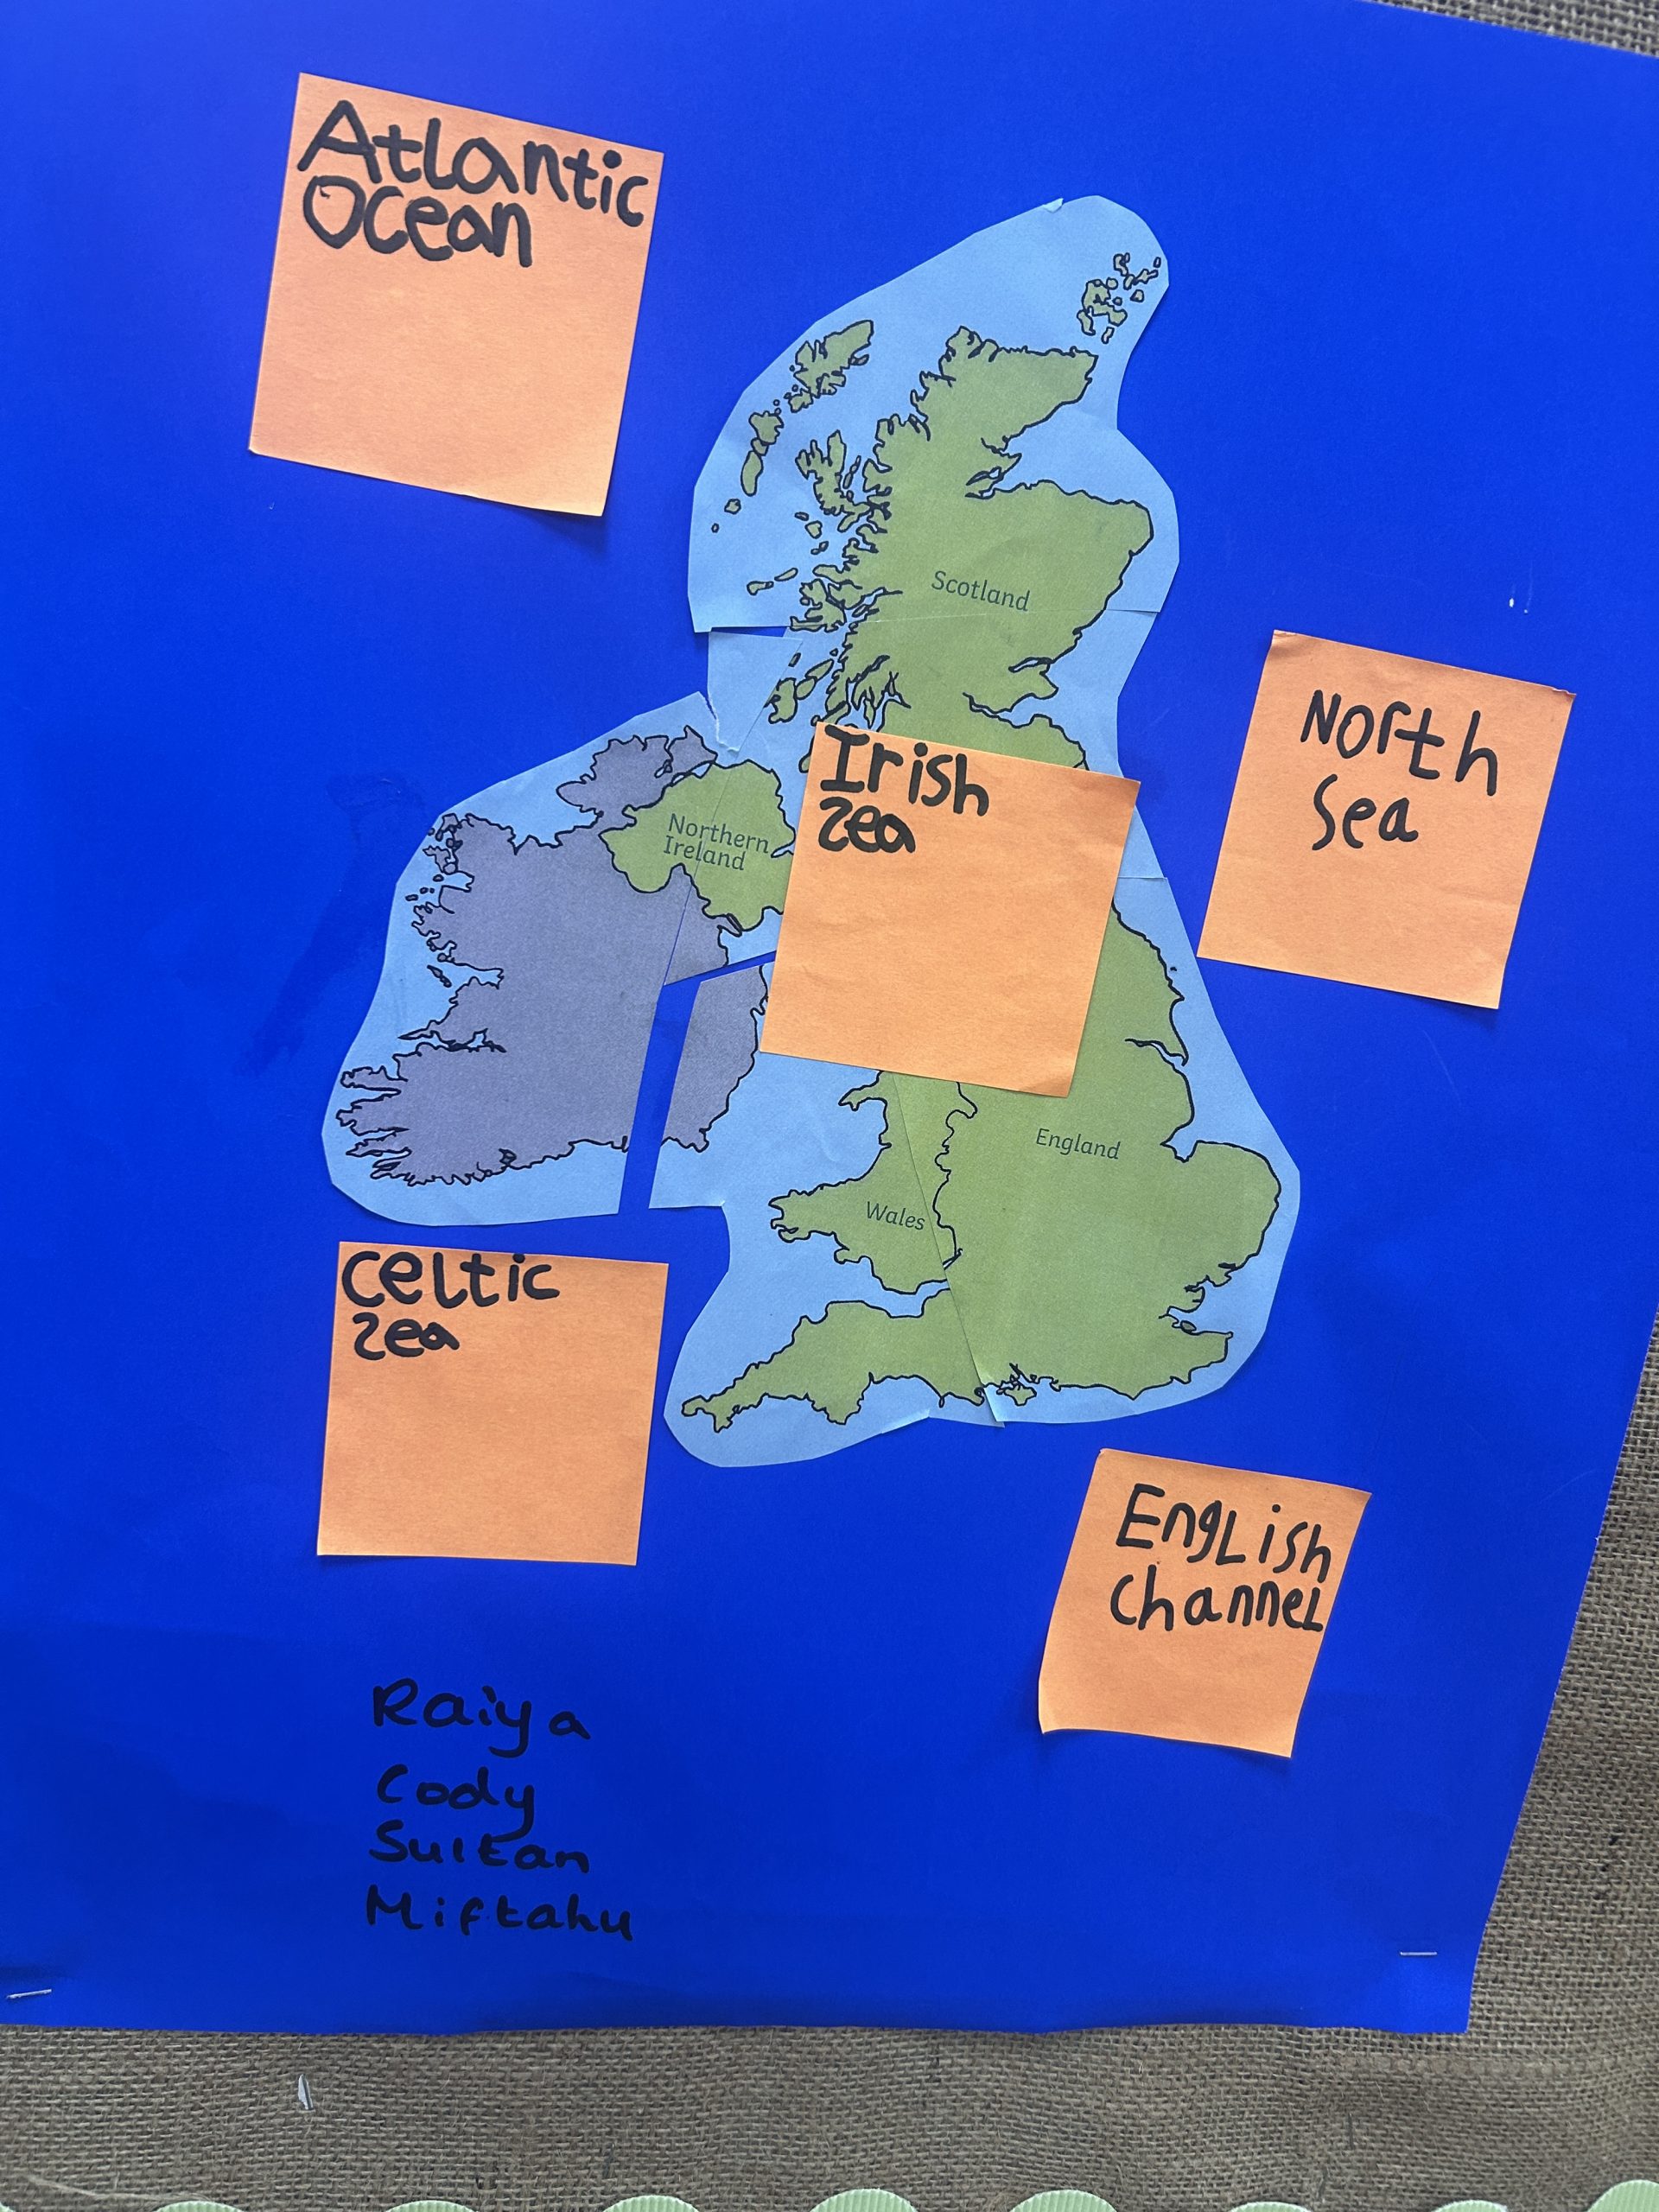 Atlantic
Ocean
Scotland
North
Sea
Irish
Sea
Northern
Ireland
England
Wales
Celtic
Sea
English
Channel
Raiya
Cody
Sultan
Miftahu